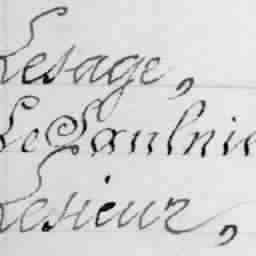 Lesage,
LeSaulnie
Lesieur,